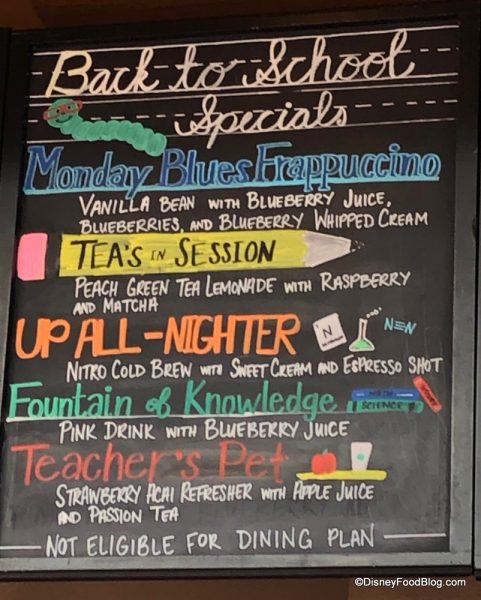 Back to School
Specials
Monday Blues Frappuccino
VANILLA BEAN WITH BLUEBERRY JUICE,
BLUEBERRIES, AND BLUEBERRY WHIPPED CREAM
TEA'S IN SESSION
PEACH GREEN TEA LEMONADE WITH RASPBERRY
AND MATCHA
UP ALL-NIGHTER
N
N=N
NITRO COLD BREW WITH SWEET CREAM AND ESPRESSO SHOT
Fountain of Knowledge
MATH
SCIENCE
PINK DRINK WITH BLUEBERRY JUICE
Teacher's Pet
STRAWBERRY ACAI REFRESHER WITH APPLE JUICE
AND PASSION TEA
NOT ELIGIBLE FOR DINING PLAN
©DisneyFoodBlog.com